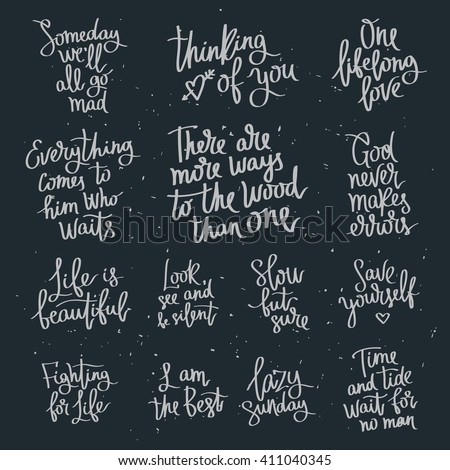 Someday
we'll
all go
mad
thinking
of you
One
lifelong
love
Everything
comes to
him who
waits
There are
more ways
to the wood
than one
God
never
makes
errors
Life is
beautiful
Look,
see and
be silent
Slow
but
sure
Save
yourself
Fighting
for life
I am
the Best
lazy
Sunday
Time
and tide
wait for
no man
shutterstock
IMAGE ID: 411040345
www.shutterstock.com